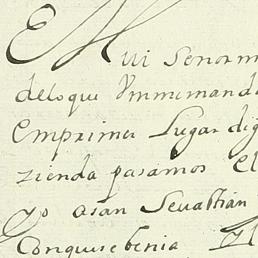 Mui Senor m
delo que Vm me mando
Em primer Lugar dig
zienda pasamos El
yo asan Sevastian
Conquise benia